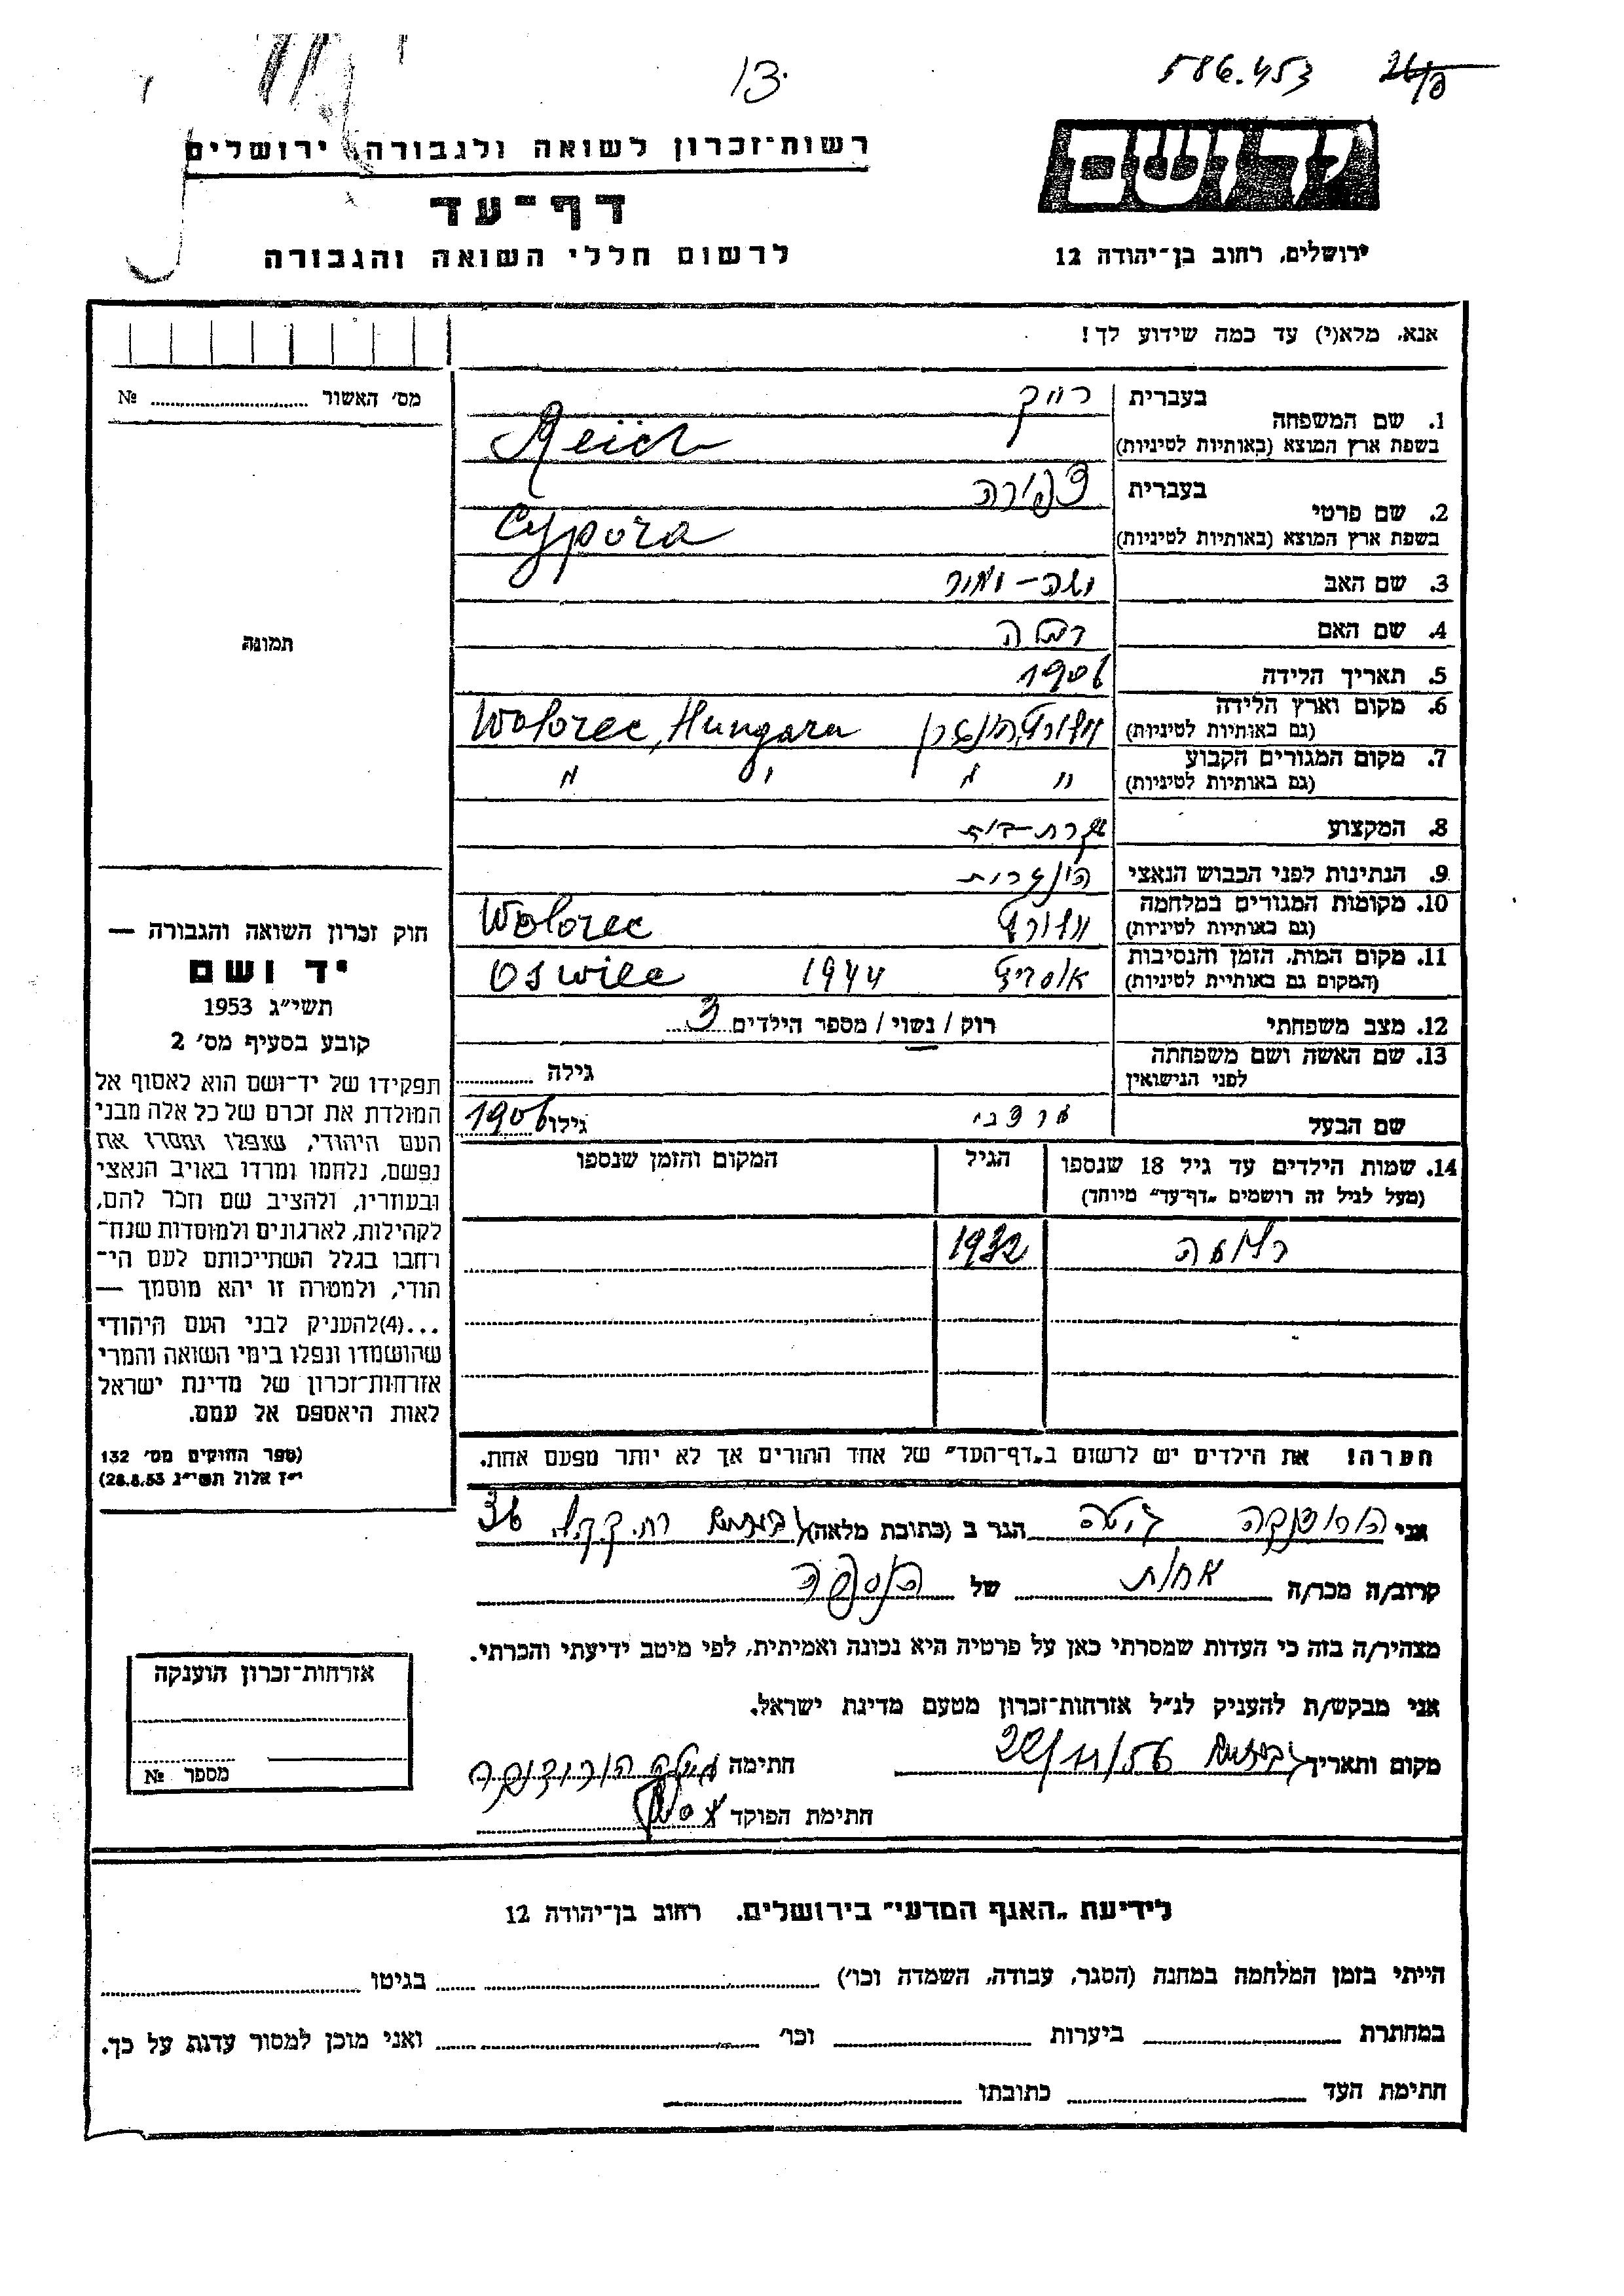 13.
586.453
רשות־זכרון לשואה ולגבורה, ירושלים
דף־עד
לרשום חללי השואה והגבורה
יד ושם
ירושלים, רחוב בן־יהודה 12
אנא, מלא(י) עד כמה שידוע לך!
מס׳ האשור № 
תמונה
1. שם המשפחה בעברית
בשפת ארץ המוצא (באותיות לטיניות) Reich
2. שם פרטי בעברית צפורה
בשפת ארץ המוצא (באותיות לטיניות) Cypora
3. שם האב
4. שם האם
5. תאריך הלידה 1906
6. מקום וארץ הלידה
(גם באותיות לטיניות) Wolorec, Hungara
7. מקום המגורים הקבוע
(גם באותיות לטיניות) " " " "
8. המקצוע עקרת-בית
9. הנתינות לפני הכבוש הנאצי הונגרית
10. מקומות המגורים במלחמה
(גם באותיות לטיניות) Wolorec
11. מקום המות, הזמן והנסיבות
(המקום גם באותיית לטיניות) 1944 Oswiec
12. מצב משפחתי רוק / נשוי / מספר הילדים 3
13. שם האשה ושם משפחתה
לפני הנישואין גילה
שם הבעל גילו 1906
14. שמות הילדים עד גיל 18 שנספו
(מעל לגיל זה רושמים „דף־עד״ מיוחד)
הגיל
המקום והזמן שנספו
1932
הערה! את הילדים יש לרשום ב„דף־העד״ של אחד ההורים אך לא יותר מפעם אחת.
חוק זכרון השואה והגבורה —
יד ושם
תשי״ג 1953
קובע בסעיף מס׳ 2
תפקידו של יד־ושם הוא לאסוף אל
המולדת את זכרם של כל אלה מבני
העם היהודי, שנפלו ומסרו את
נפשם, נלחמו ומרדו באויב הנאצי
ובעוזריו, ולהציב שם וזכר להם,
לקהילות, לארגונים ולמוסדות שנח־
רחבו בגלל השתייכותם לעם הי־
הודי, ולמטרה זו יהא מוסמך —
...(4)להעניק לבני העם היהודי
שהושמדו ונפלו בימי השואה והמרי
אזרחות־זכרון של מדינת ישראל
לאות היאספם אל עמם.
(ספר החוקים מס׳ 132
י״ז אלול תשי״ג 28.8.53)
אני הגר ב (כתובת מלאה) 36
קרוב/ה מכר/ה אחות של הנספה
מצהיר/ה בזה כי העדות שמסרתי כאן על פרטיה היא נכונה ואמיתית, לפי מיטב ידיעתי והכרתי.
אני מבקש/ת להעניק לנ״ל אזרחות־זכרון מטעם מדינת ישראל.
מקום ותאריך 22/11/56 חתימה
חתימת הפוקד
אזרחות־זכרון הוענקה
מספר №
לידיעת „האגף המדעי״ בירושלים, רחוב בן־יהודה 12
הייתי בזמן המלחמה במחנה (הסגר, עבודה, השמדה וכו׳) בגיטו
במחתרת ביערות וכו׳ ואני מוכן למסור עדות על כך.
חתימת העד כתובתו